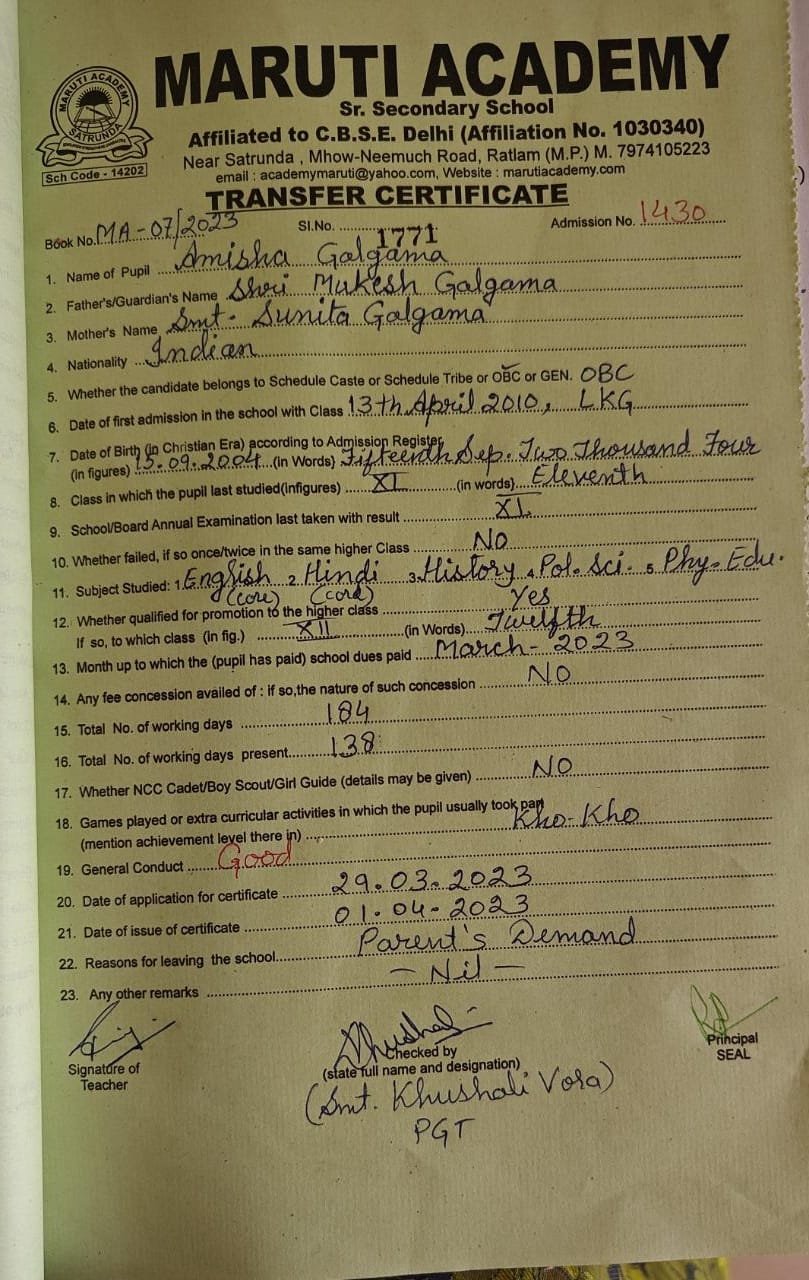 MARUTI ACADEMY
MARUTI ACADEMY
SATRUNDA
Sr. Secondary School
Affiliated to C.B.S.E. Delhi (Affiliation No. 1030340)
Near Satrunda , Mhow-Neemuch Road, Ratlam (M.P.) M. 7974105223
Sch Code - 14202
email : academymaruti@yahoo.com, Website : marutiacademy.com
TRANSFER CERTIFICATE
Book No. MA-07/2023 Sl.No. 1771 Admission No. 1430
1. Name of Pupil Amisha Galgama
2. Father's/Guardian's Name Shri Mukesh Galgama
3. Mother's Name Smt. Sunita Galgama
4. Nationality Indian
5. Whether the candidate belongs to Schedule Caste or Schedule Tribe or OBC or GEN. OBC
6. Date of first admission in the school with Class 13th April 2010, LKG
7. Date of Birth (in Christian Era) according to Admission Register
(in figures) 15.09.2004 (in Words) Fifteenth Sep. Two Thousand Four
8. Class in which the pupil last studied(infigures) XI (in words) Eleventh
9. School/Board Annual Examination last taken with result XI
10. Whether failed, if so once/twice in the same higher Class No
11. Subject Studied: 1. English 2. Hindi 3. History 4. Pol. Sci. 5. Phy. Edu.
(core) (core)
12. Whether qualified for promotion to the higher class Yes
If so, to which class (in fig.) XII (in Words) Twelfth
13. Month up to which the (pupil has paid) school dues paid March - 2023
14. Any fee concession availed of : if so,the nature of such concession No
15. Total No. of working days 184
16. Total No. of working days present 138
17. Whether NCC Cadet/Boy Scout/Girl Guide (details may be given) No
18. Games played or extra curricular activities in which the pupil usually took part
(mention achievement level there in) Kho-Kho
19. General Conduct Good
20. Date of application for certificate 29.03.2023
21. Date of issue of certificate 01.04-2023
22. Reasons for leaving the school Parent's Demand
23. Any other remarks - Nil -
Signature of
Teacher
Checked by
(state full name and designation)
(Smt. Khushali Vora)
PGT
Principal
SEAL